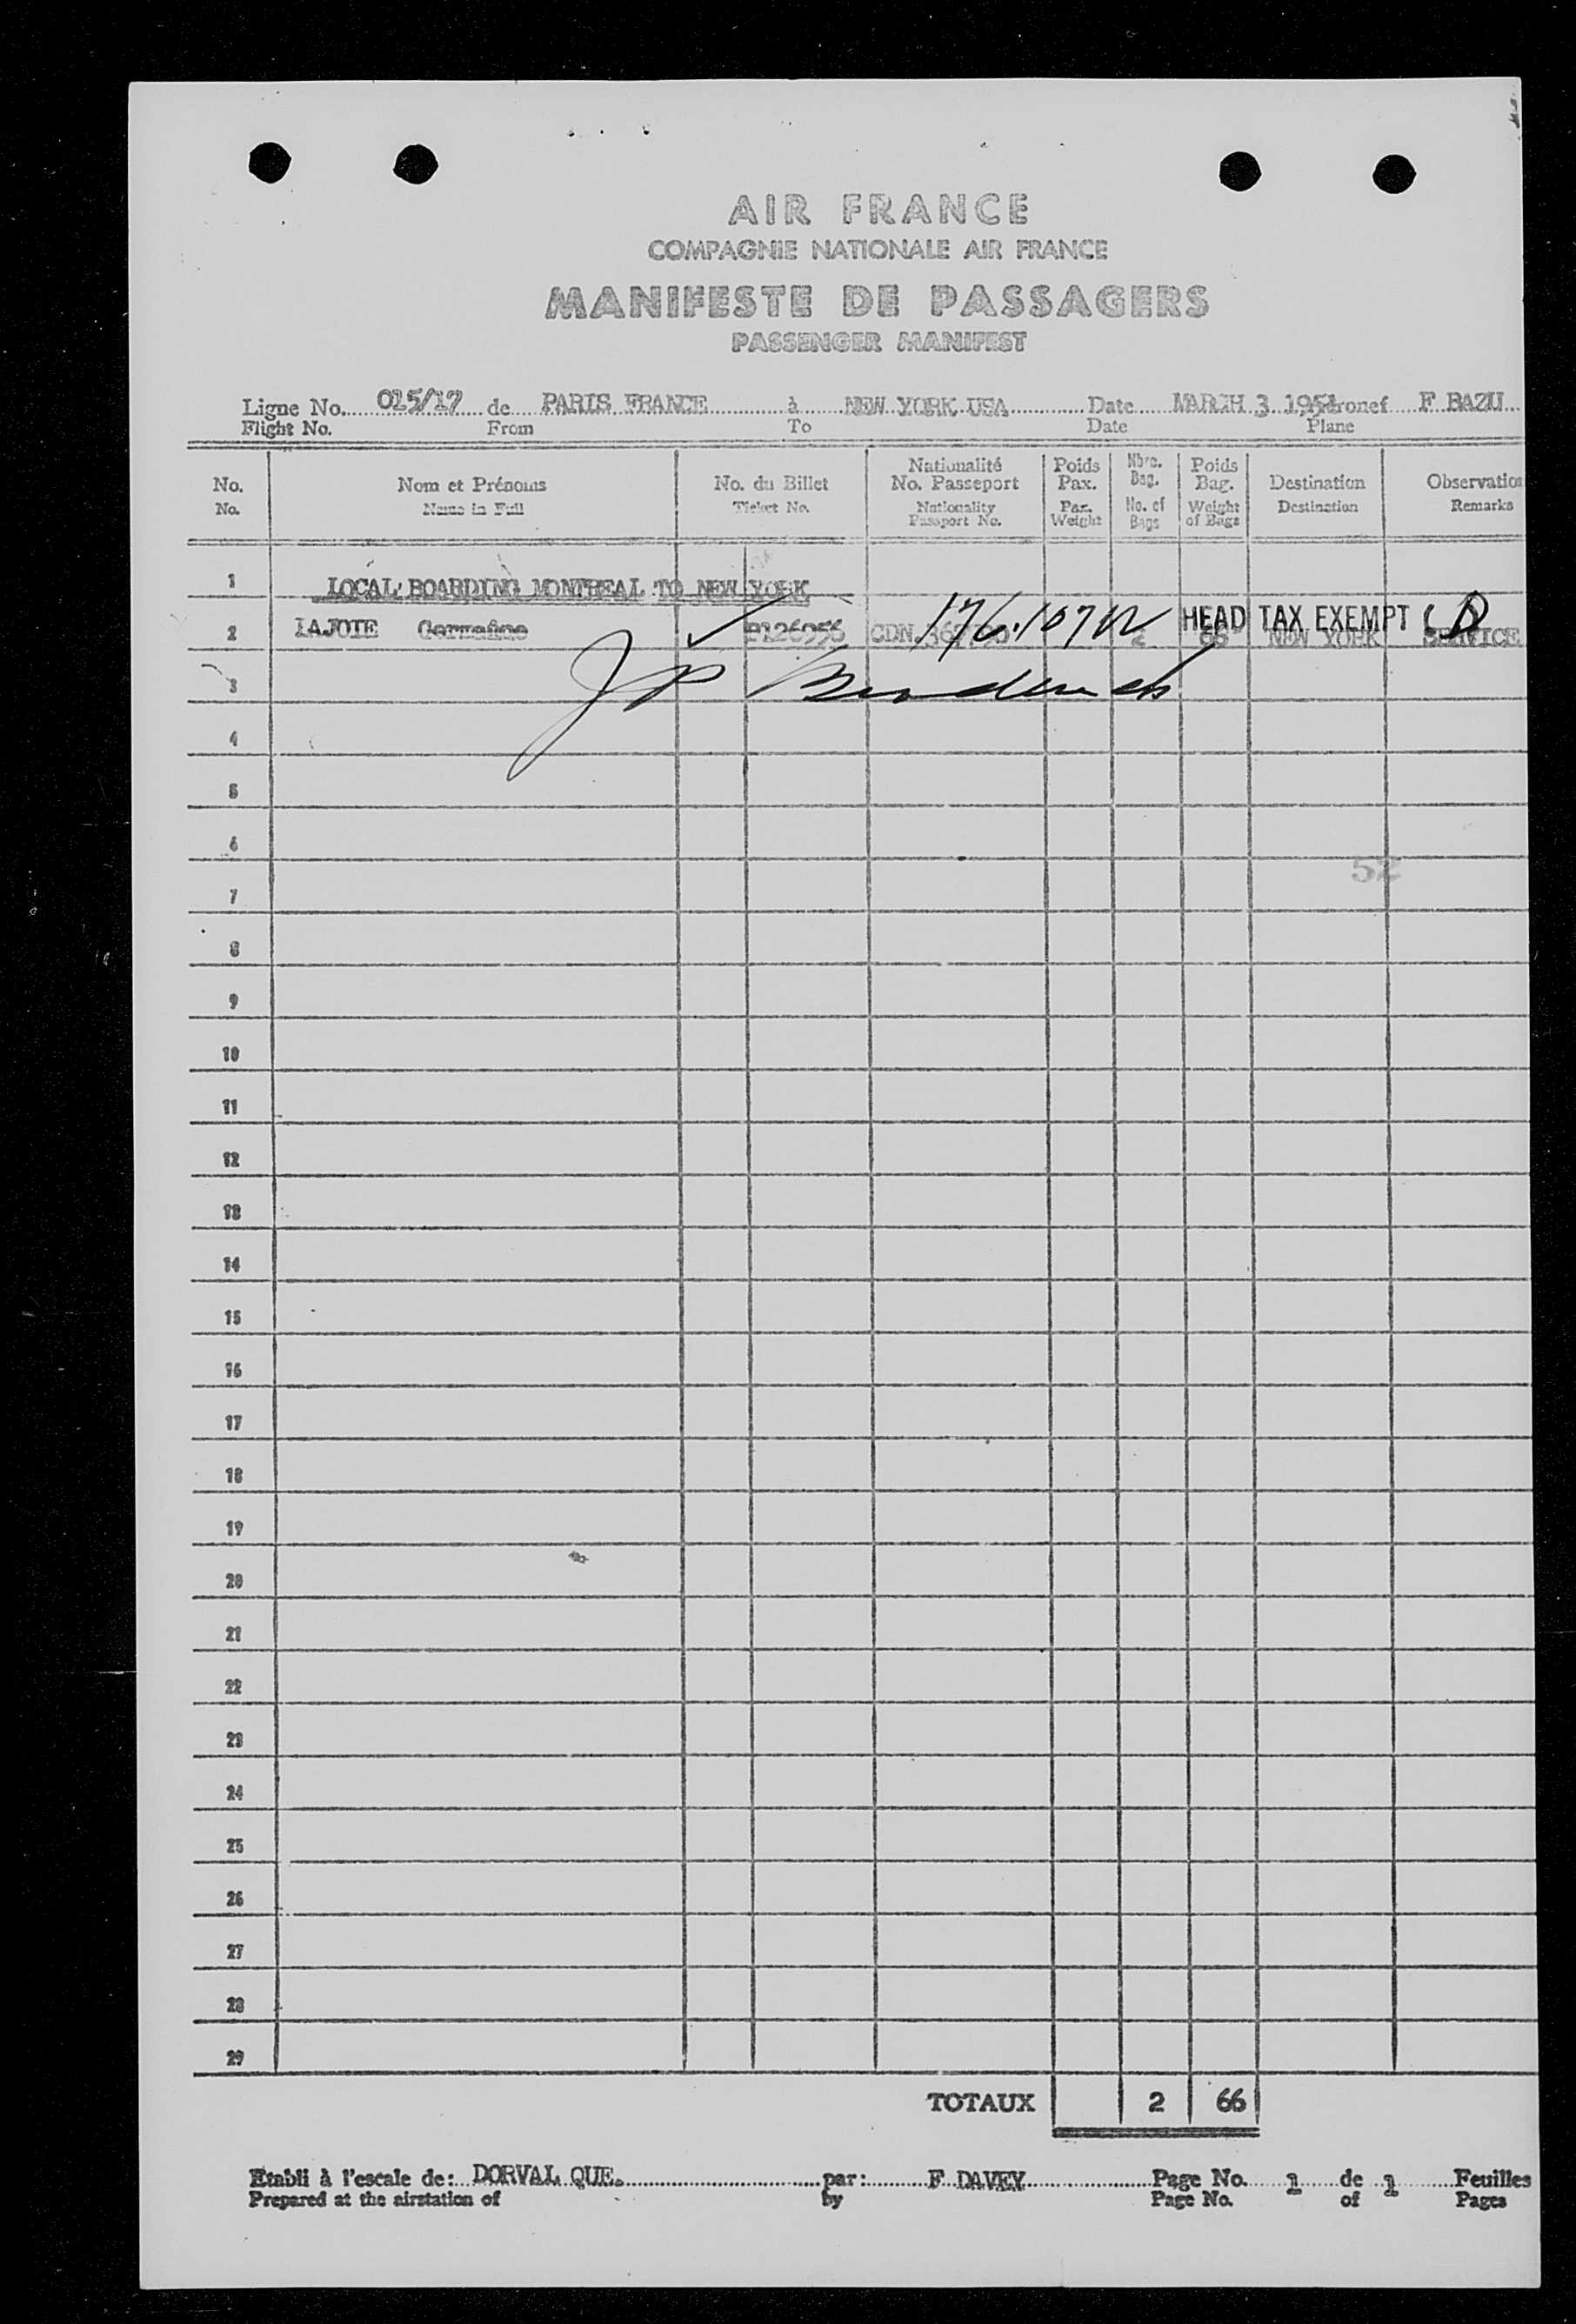 AIR FRANCE
COMPAGNIE NATIONALE AIR FRANCE
MANIFESTE DE PASSAGERS
PASSENGER MANIFEST
Ligne No. 015/17 de PARIS FRANCE à NEW YORK USA Date MARCH 3 1951 F BAZU
Flight No. From To Date Plane
No. Nom et Prénoms No. du Billet Nationalité No. Passeport Poids Pax. Nbre. Bag. Poids Bag. Destination Observation
No. Name in Full Ticket No. Nationality Passport No. Pax. Weight No. of Bags Weight of Bags Destination Remarks
1 LOCAL BOARDING MONTREAL TO NEW YORK
2 LAJOIE Germaine CDN 2 66 NEW YORK SERVICE
HEAD TAX EXEMPT
3
4
5
6
52
7
8
9
10
11
12
13
14
15
16
17
18
19
20
21
22
23
24
25
26
27
28
29
TOTAUX 2 66
Etabli à l'escale de: DORVAL QUE. par: F DAVEY Page No. 1 de 1 Feuilles
Prepared at the airstation of by Page No. of Pages